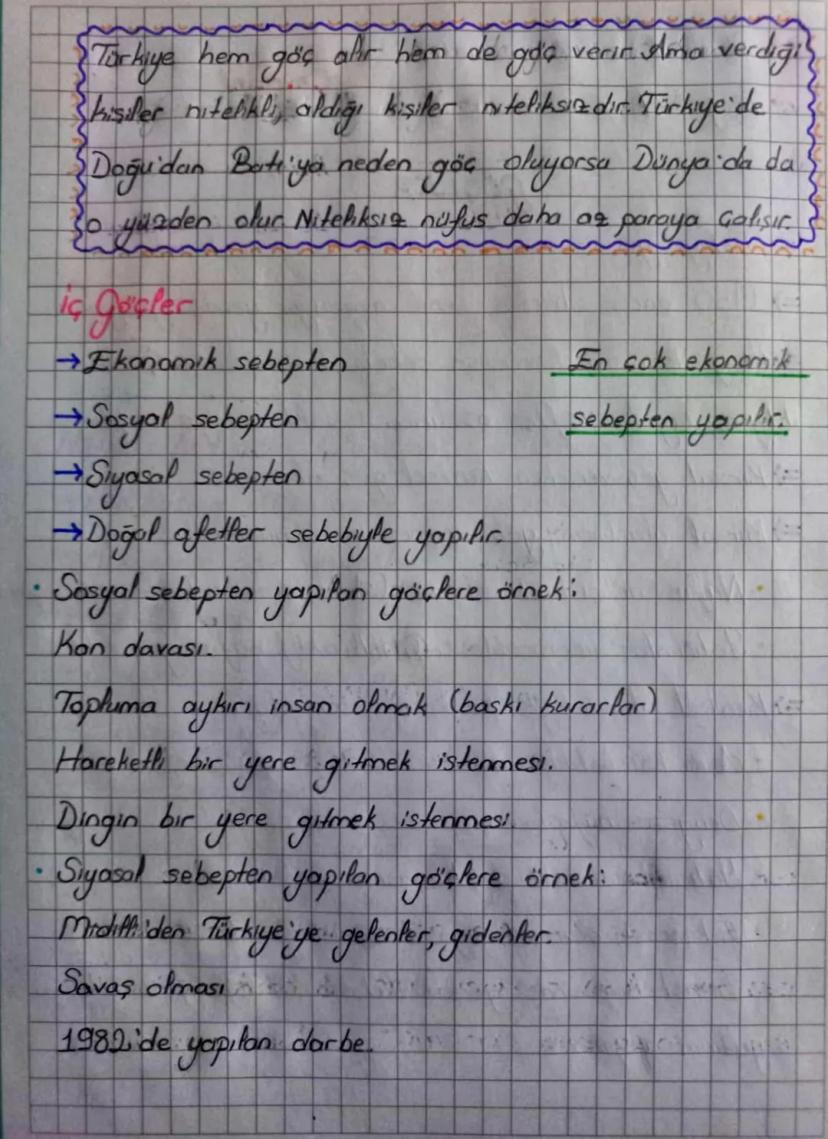 Türkiye hem göç alır hem de göç verir. Ama verdiği
kişiler nitelikli, aldığı kişiler niteliksizdir. Türkiye'de
Doğu'dan Batı'ya neden göç oluyorsa Dünya'da da
o yüzden olur. Niteliksiz nüfus daha az paraya çalışır.
iç Göçler
→ Ekonomik sebepten
En çok ekonomik
→ Sosyal sebepten
sebepten yapılır.
→ Siyasal sebepten
→ Doğal afetler sebebiyle yapılır.
• Sosyal sebepten yapılan göçlere örnek:
Kan davası.
Topluma aykırı insan olmak (baskı kurarlar)
Hareketli bir yere gitmek istenmesi.
Dingin bir yere gitmek istenmesi.
• Siyasal sebepten yapılan göçlere örnek:
Midilli'den Türkiye'ye gelenler, gidenler.
Savaş olması
1982'de yapılan darbe.